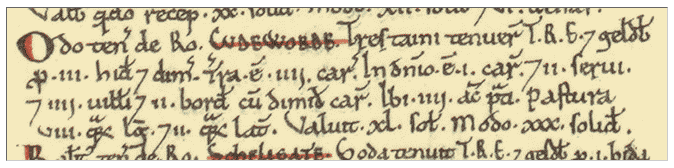 Valuit qdo recep. xx. solid. modo.
Odo ten̄ de Ro. CVDEWORDE. Tres taini tenuer̄ T.R.E. ⁊ geldb̄
p. iii. hid ⁊ dim̄. Tr̄a. ē. iiii. car̄. In dn̄io. ē. i. car̄. ⁊ ii. serui.
⁊ iiii. uilli ⁊ ii. bord cū dimid car̄. Ibi. iiii. ac̄ p̄ti. Pastura
viii. qr̄z lḡ. ⁊ ii. qr̄z lat̄. Valuit. xl. sol. Modo. xxx. solid.
ten̄ de Ro. Goda tenuit T.R.E. ⁊ geldb̄ p. i. hida